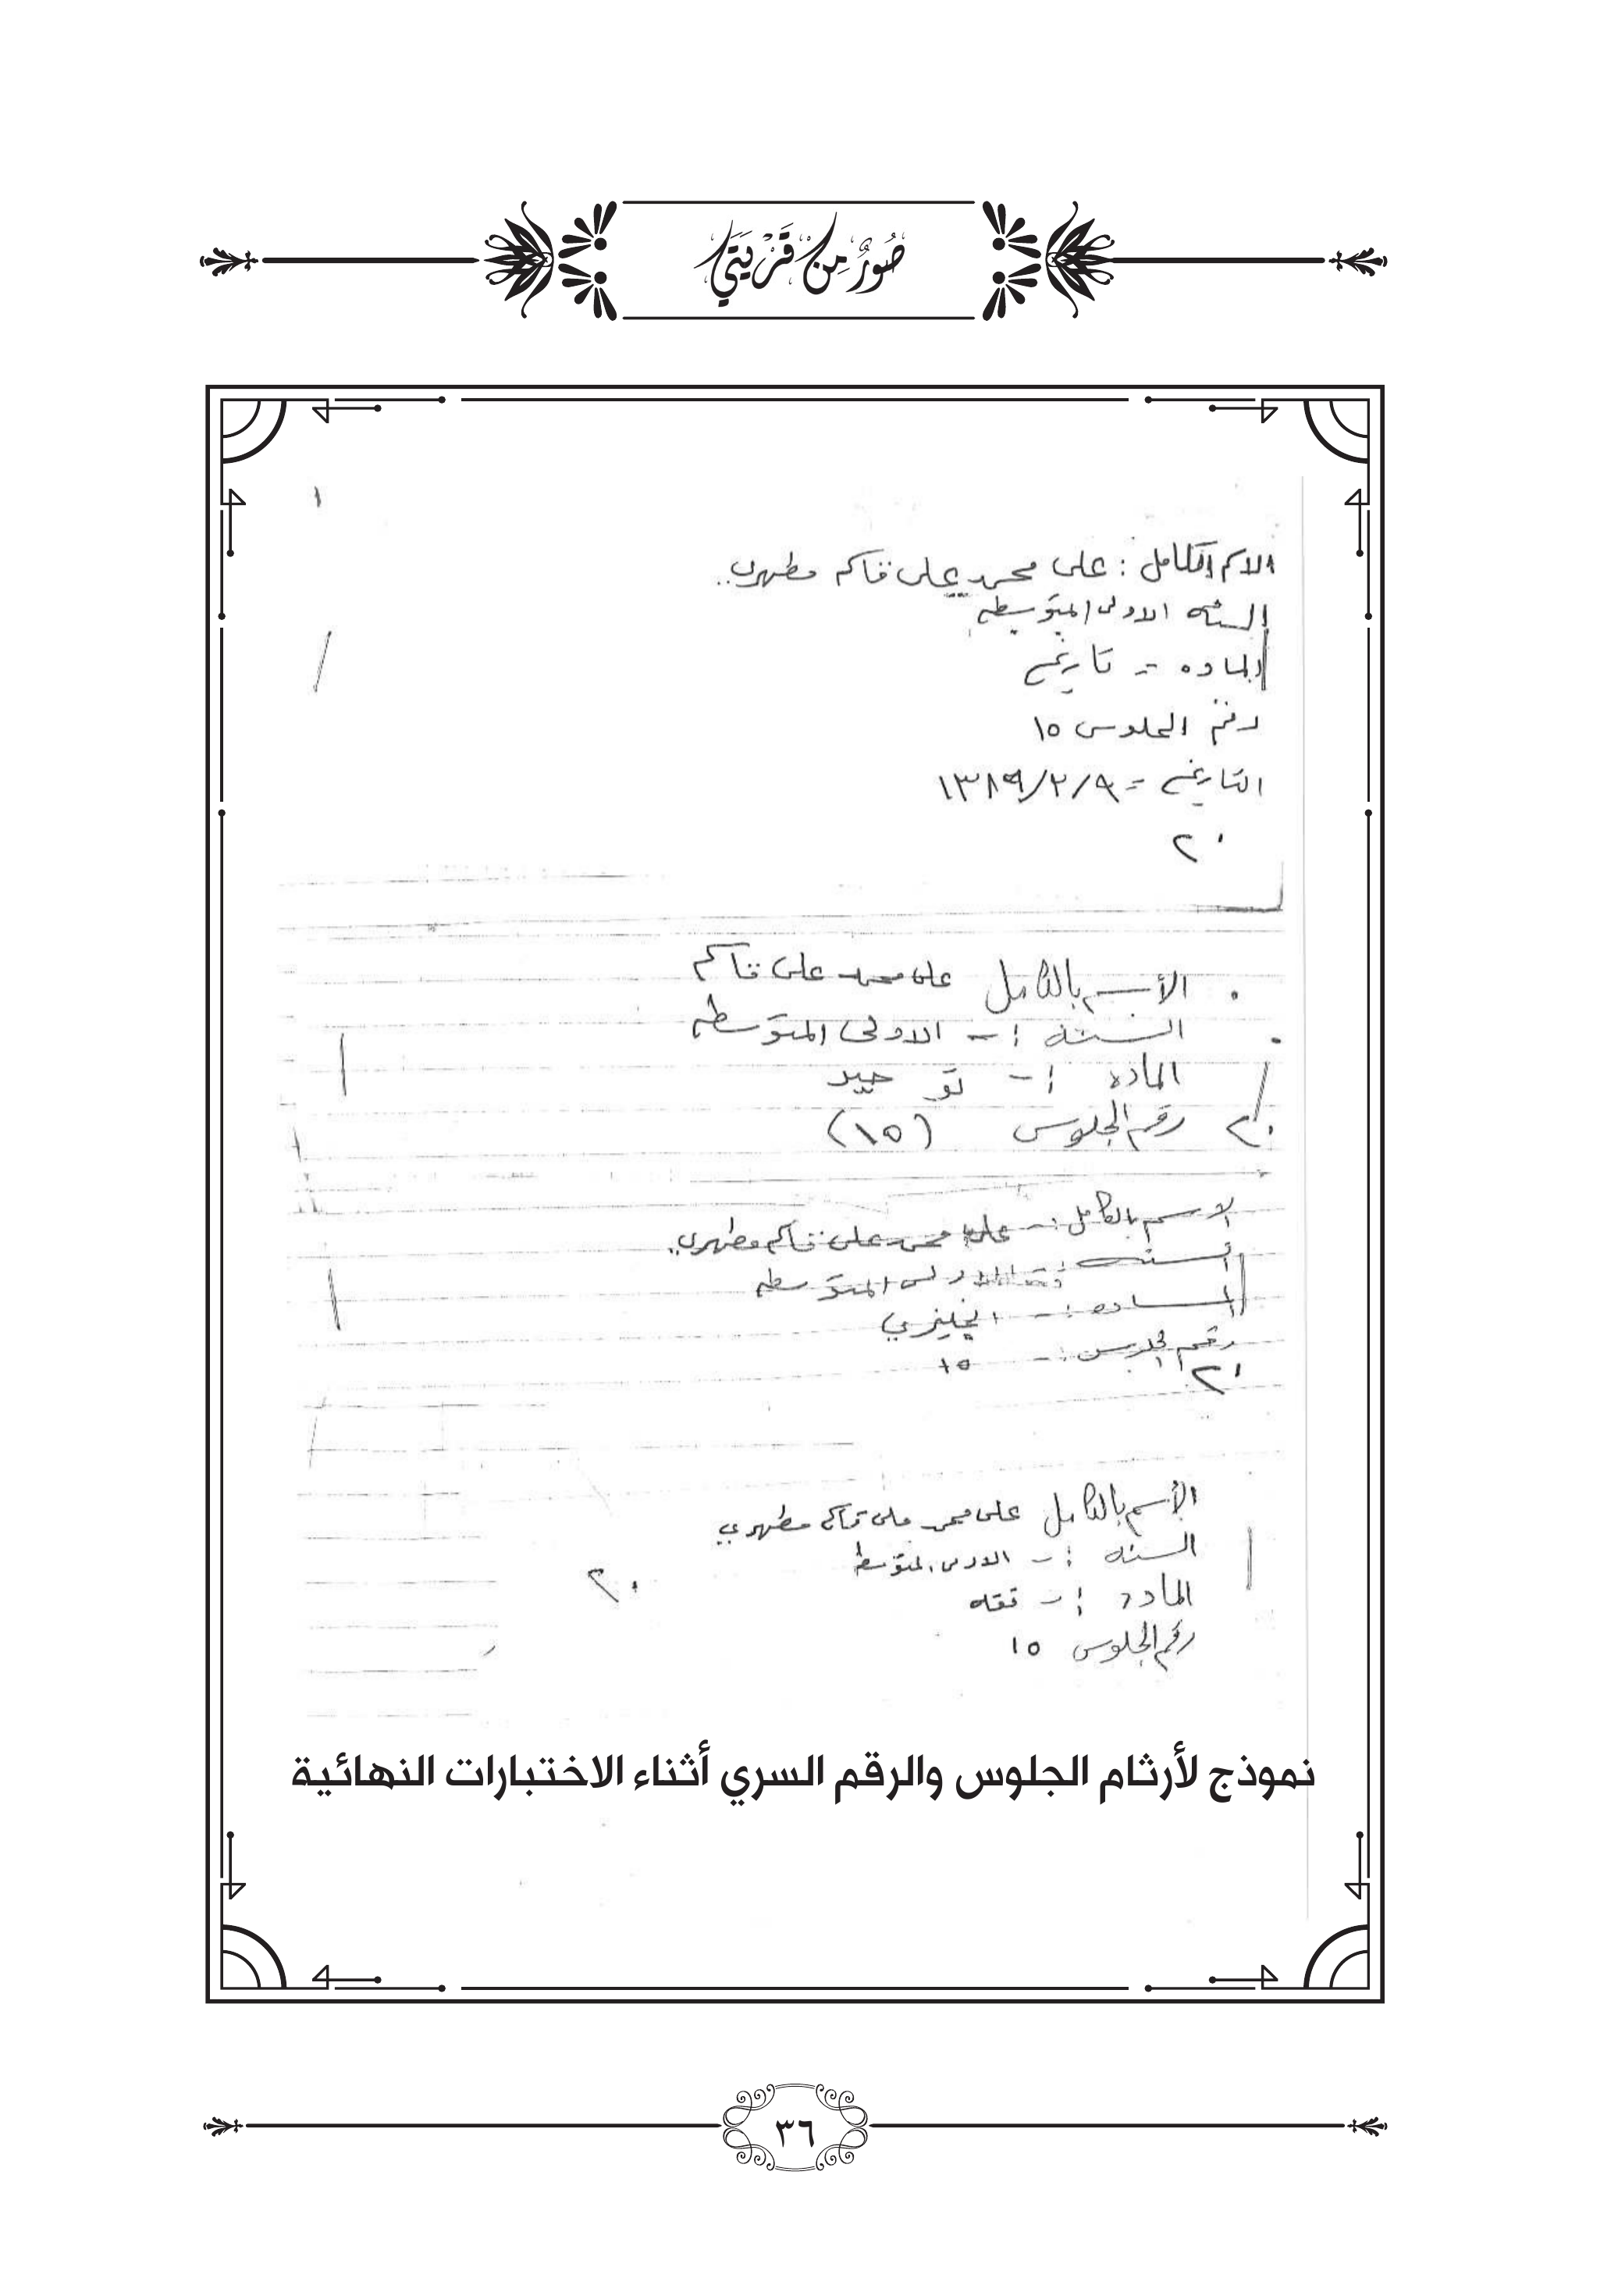 صُوَرٌ مِنْ قَرْيَتِي
١
الاسم الكامل : على محمد على قاسم مطهري
السنه الاولى المتوسطه
الماده = تاريخ
رقم الجلوس ١٥
التاريخ = ١٣٨٩/٢/٩
٢٠
الأسم بالكامل على محمد على قاسم
السنه :- الاولى المتوسطه
الماده :- توحيد
٢٠ رقم الجلوس (١٥)
الاسم بالكامل :- على محمد على قاسم مطهري
السنه :- الاولى المتوسطه
الماده :- انجليزي
رقم الجلوس :- ١٥
٢٠
الأسم بالكامل على محمد على قاسم مطهري
السنه :- الاولى المتوسطه
٢٠
الماده :- فقه
رقم الجلوس ١٥
نموذج لأرثام الجلوس والرقم السري أثناء الاختبارات النهائية
٣٦